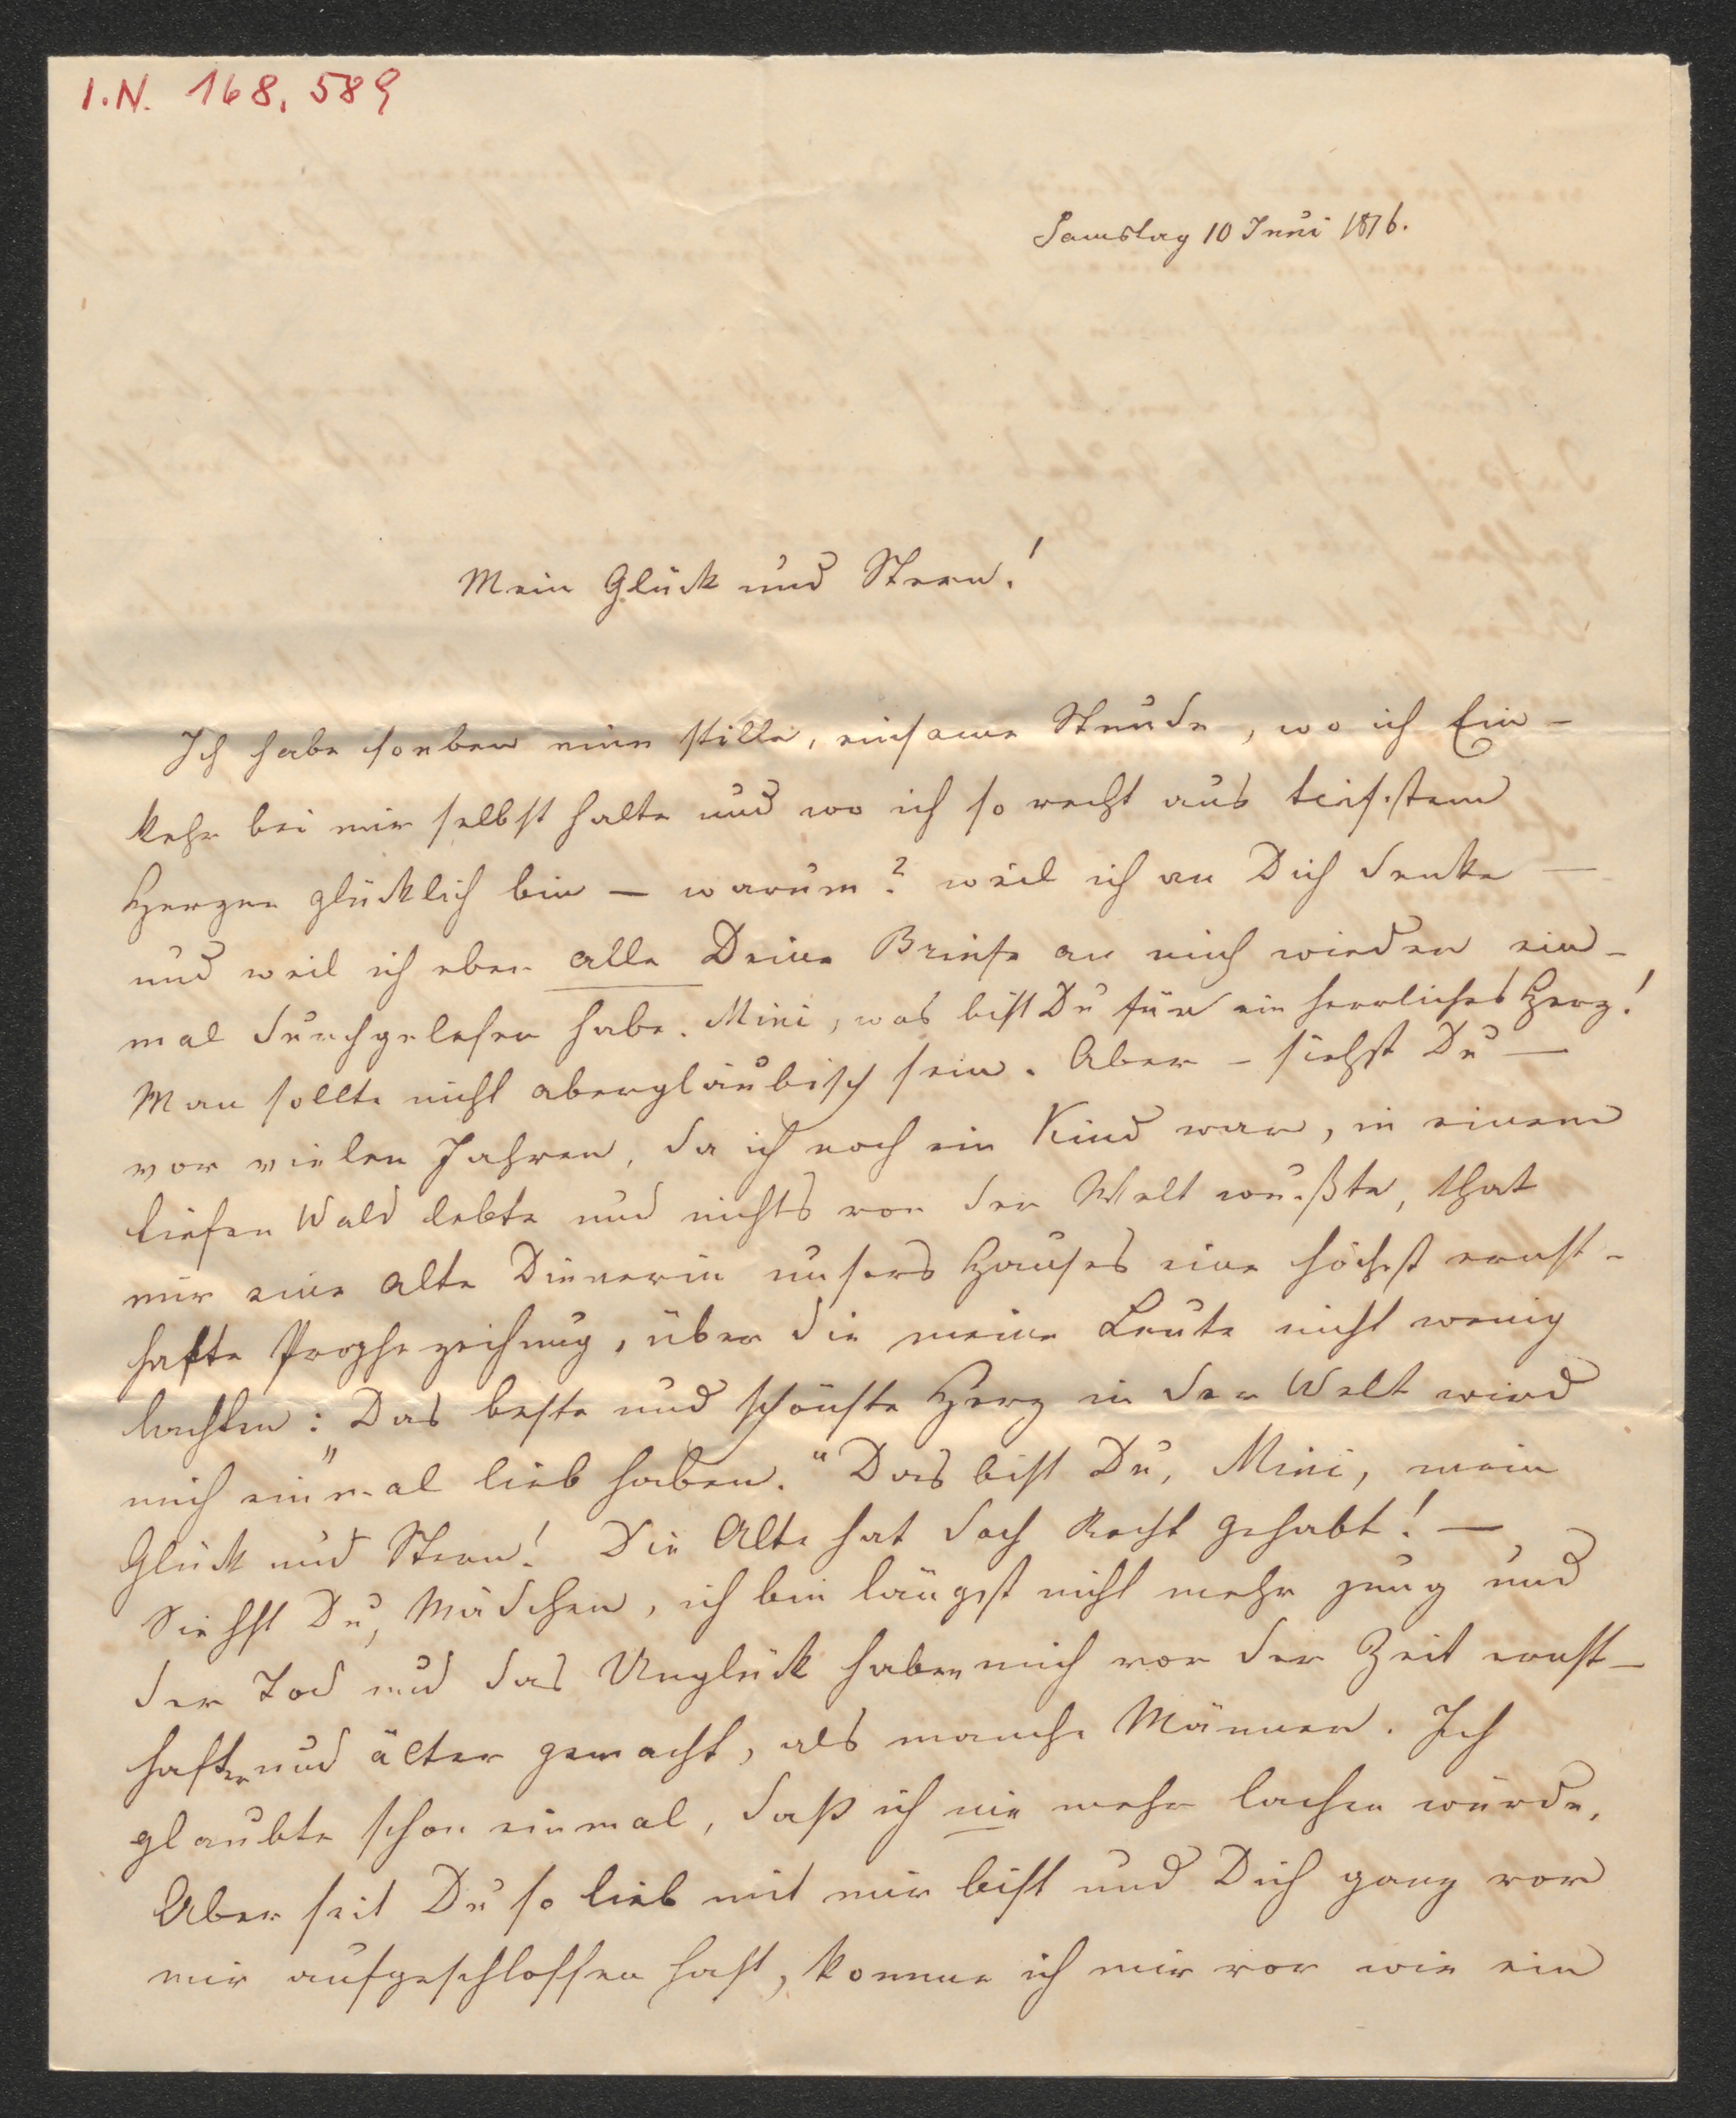 I.N. 168.589
Samstag 10 Juni 1876.
Mein Glück und Stern!
Ich habe soeben eine stille, einsame Stunde, wo ich Ein-
kehr bei mir selbst halte und wo ich so recht aus tiefstem
Herzen glücklich bin – warum? weil ich an Dich denke –
und weil ich eben alle Deine Briefe an mich wieder ein-
mal durchgelesen habe. Mini, was bist Du für ein herrliches Herz!
Man sollte nicht abergläubisch sein. Aber – siehst Du –
vor vielen Jahren, da ich noch ein Kind war, in einem
tiefen Wald lebte und nichts von der Welt wußte, that
mir eine alte Dienerin unsers Hauses eine höchst ernst-
hafte Prophezeihung, über die meine Leute nicht wenig
lachten: „Das beste und schönste Herz in der Welt wird
mich einmal lieb haben.“ Das bist Du, Mini, mein
Glück und Stern! Die Alte hat doch Recht gehabt! –
Siehst Du, Mädchen, ich bin längst nicht mehr jung und
der Tod und das Unglück haben mich vor der Zeit ernst-
hafter und älter gemacht, als manche Männer. Ich
glaubte schon einmal, daß ich nie mehr lachen würde.
Aber seit Du so lieb mit mir bist und Dich ganz vor
mir aufgeschlossen hast, komme ich mir vor wie ein